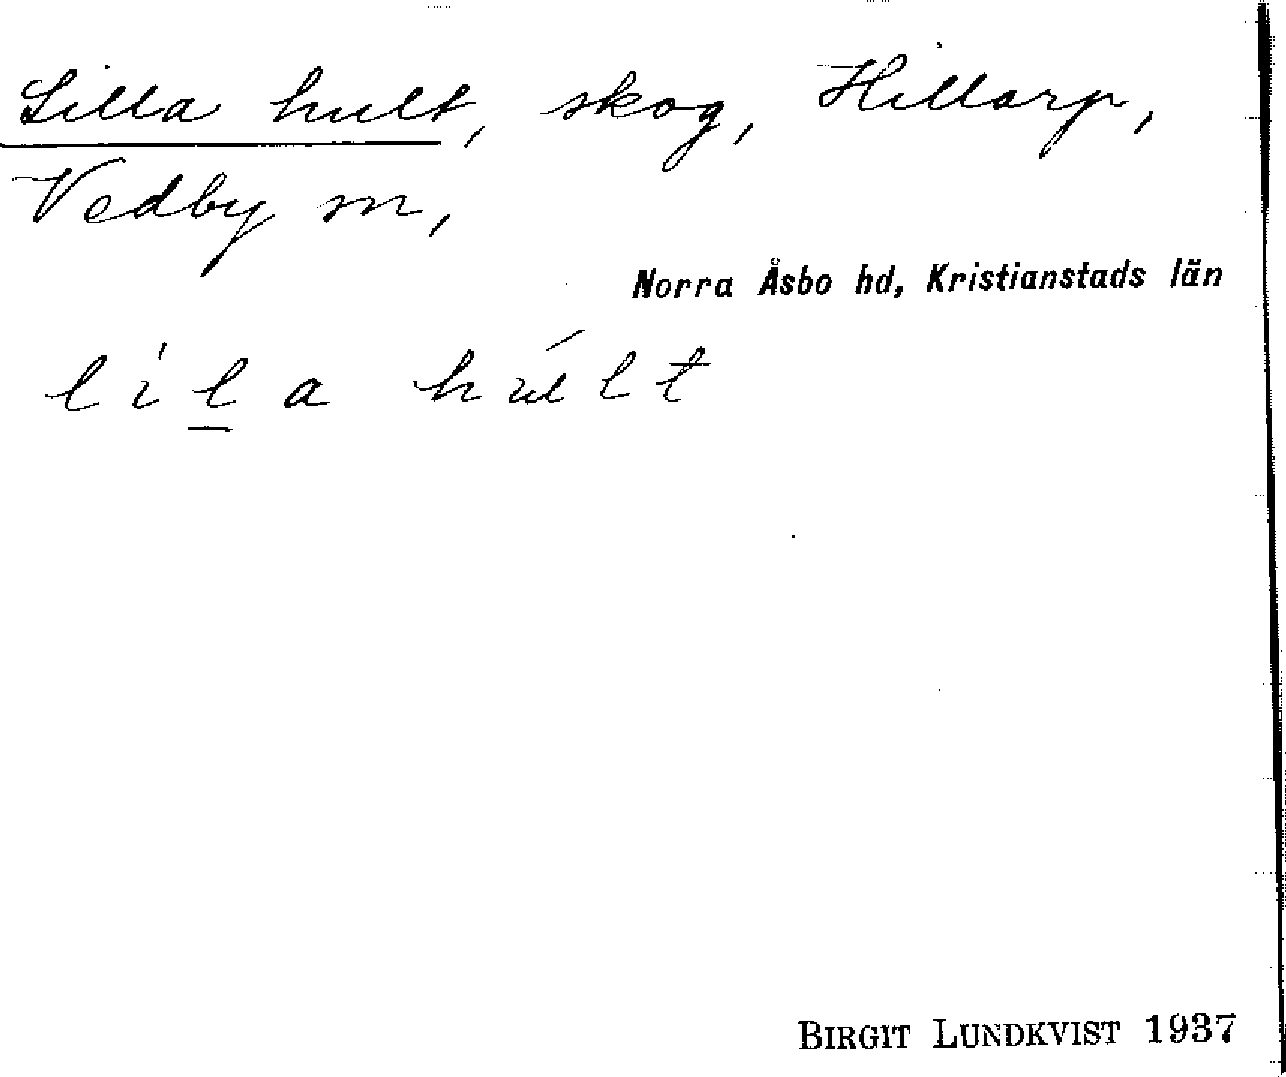 Lilla hult, skog, Hillarp,
Vedby sn,
Norra Åsbo hd, Kristianstads län
lila húlt
BIRGIT LUNDKVIST 1937